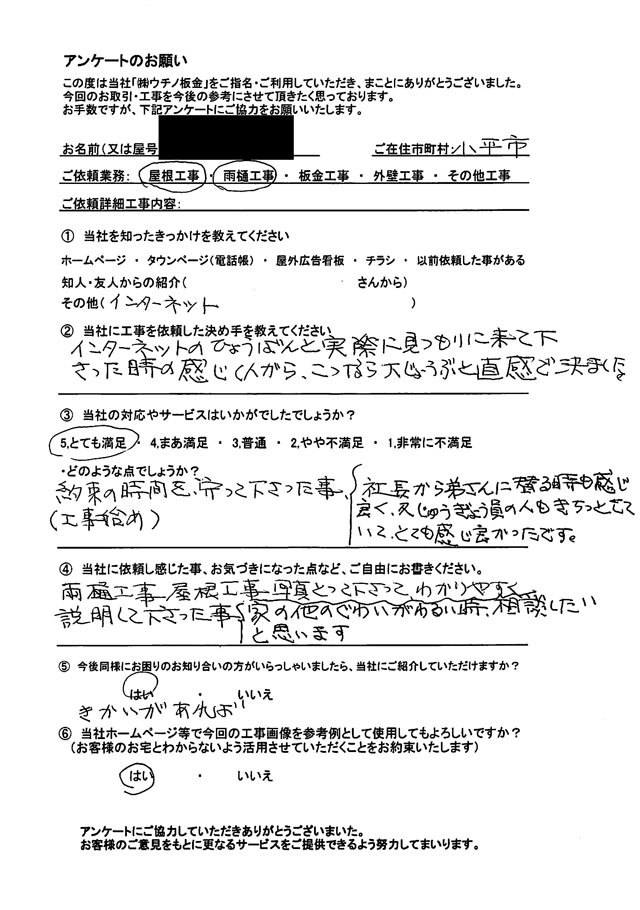 アンケートのお願い
この度は当社「㈱ウチノ板金」をご指名・ご利用していただき、まことにありがとうございました。
今回のお取引・工事を今後の参考にさせて頂きたく思っております。
お手数ですが、下記アンケートにご協力をお願いいたします。
お名前(又は屋号 ご在住市町村:小平市
ご依頼業務: 屋根工事 ・ 雨樋工事 ・ 板金工事 ・ 外壁工事 ・ その他工事
ご依頼詳細工事内容:
① 当社を知ったきっかけを教えてください
ホームページ ・ タウンページ(電話帳) ・ 屋外広告看板 ・ チラシ ・ 以前依頼した事がある
知人・友人からの紹介( さんから)
その他(インターネット )
② 当社に工事を依頼した決め手を教えてください
インターネットのひょうばんと実際に見つもりに来て下
さった時の感じ(人がら、こっなら大じょうぶと直感で決ました
③ 当社の対応やサービスはいかがでしたでしょうか?
5,とても満足 ・ 4,まあ満足 ・ 3,普通 ・ 2,やや不満足 ・ 1,非常に不満足
・どのような点でしょうか?
約束の時間を、守って下さった事、
(工事含め)
社長から弟さんに 時も感じ
良く、又じゅうぎょう員の人もきちっとして
いて、とても感じ良かったです。
④ 当社に依頼し感じた事、お気づきになった点など、ご自由にお書きください。
雨樋工事 屋根工事 写真とって下さって わかりやすく
説明して下さった事
家の他のぐわいがわるい時、相談したい
と思います
⑤ 今後同様にお困りのお知り合いの方がいらっしゃいましたら、当社にご紹介していただけますか?
はい ・ いいえ
きかいがあれば
⑥ 当社ホームページ等で今回の工事画像を参考例として使用してもよろしいですか?
(お客様のお宅とわからないよう活用させていただくことをお約束いたします)
はい ・ いいえ
アンケートにご協力していただきありがとうございまいた。
お客様のご意見をもとに更なるサービスをご提供できるよう努力してまいります。